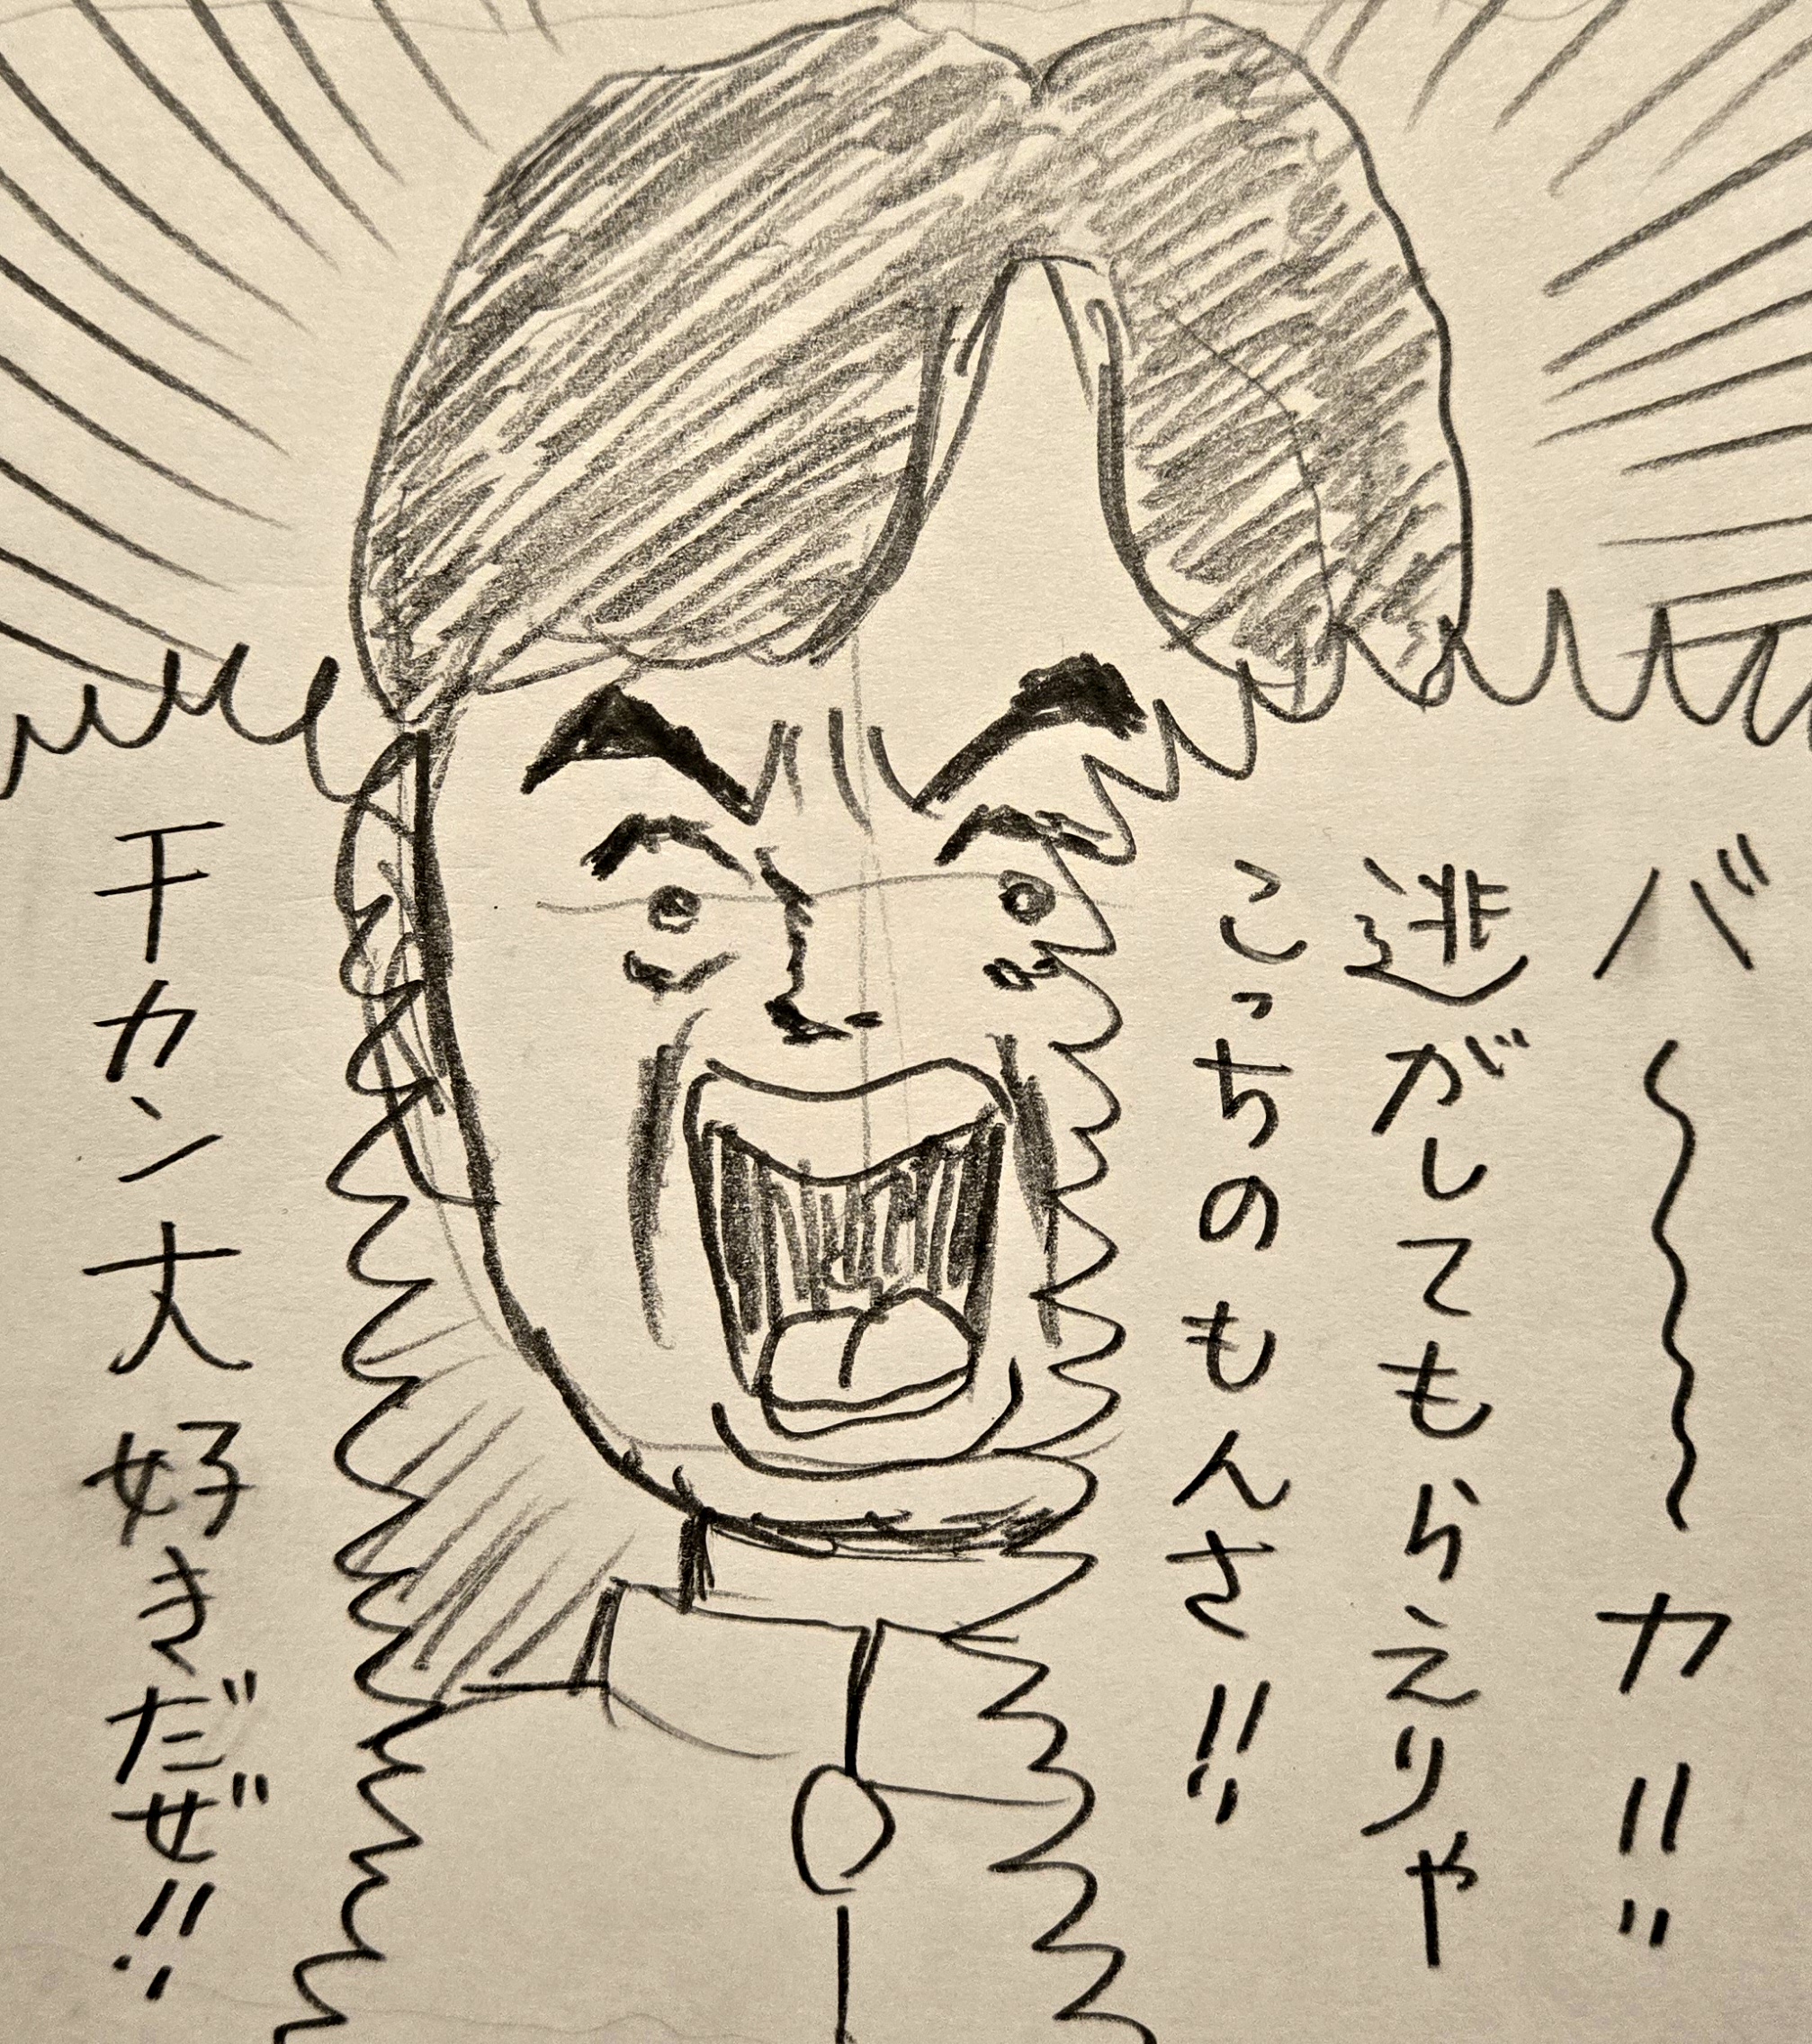 バ〜カ!!
逃がしてもらえりゃ
こっちのもんさ!!
チカン大好きだぜ!!